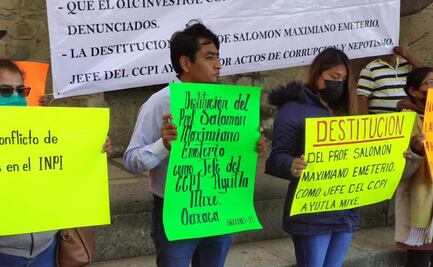 - QUE EL O.I.C INVESTIGE
DENUNCIADOS.
- LA DESTITUCIÓN PROF SALOMON MAXIMIANO EMETERIO,
JEFE DEL CCPI ACTOS DE CORRUPCION Y NEPOTISMO.
onflicto de
s en el INPI
Destitución del
Prof Salomon
Maximiano
Emeterio
como Jefe del
CCPI Ayutla
Mixe.
Oaxaca
DESTITUCION
DEL PROF. SALOMÓN
MAXIMIANO EMETERIO.
COMO JEFE DEL CCPI
AYUTLA MIXE.